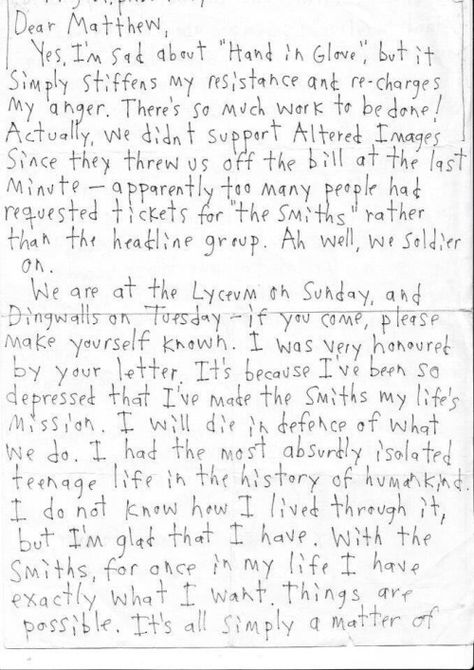 Dear Matthew,
Yes, I'm sad about "Hand in Glove", but it
simply stiffens my resistance and re-charges
my anger. There's so much work to be done!
Actually, we didn't support Altered Images
since they threw us off the bill at the last
minute — apparently too many people had
requested tickets for "the Smiths" rather
than the headline group. Ah well, we soldier
on.
We are at the Lyceum on Sunday, and
Dingwalls on Tuesday – if you come, please
make yourself known. I was very honoured
by your letter. It's because I've been so
depressed that I've made the Smiths my life's
mission. I will die in defence of what
we do. I had the most absurdly isolated
teenage life in the history of humankind.
I do not know how I lived through it,
but I'm glad that I have. With the
Smiths, for once in my life I have
exactly what I want. Things are
possible. It's all simply a matter of